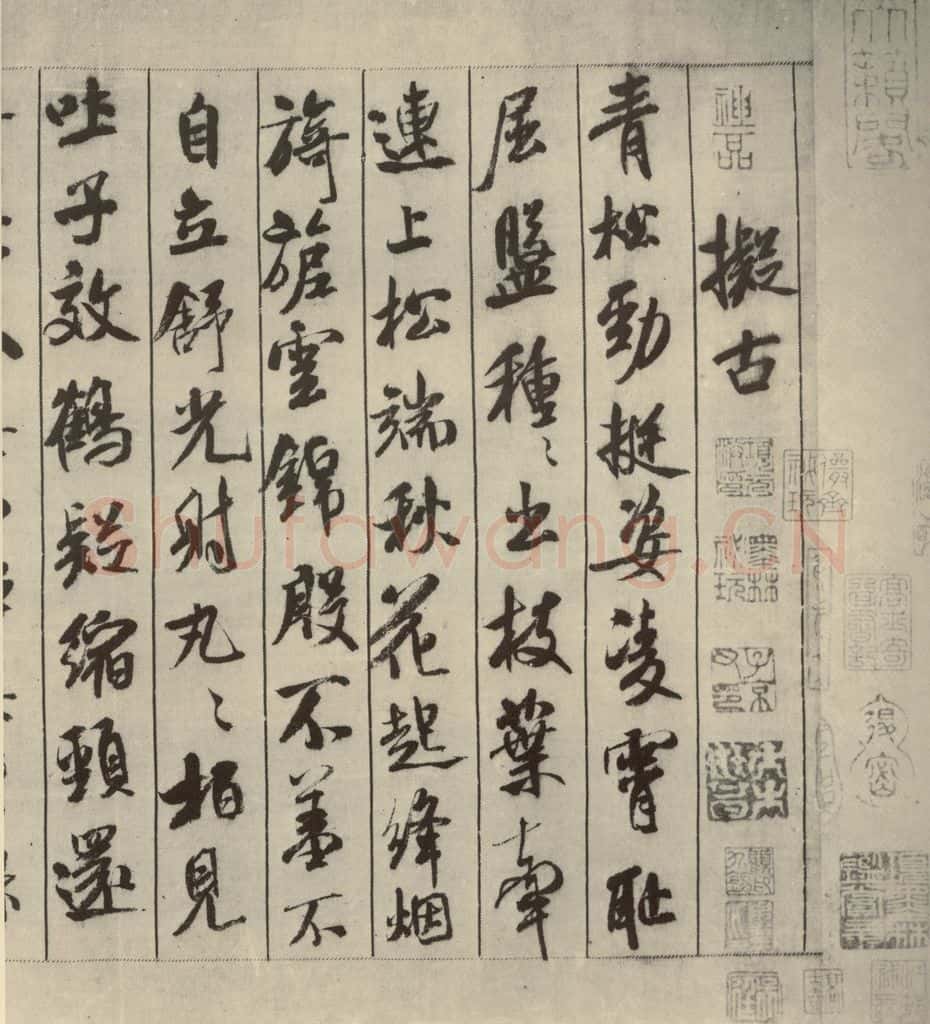 神品
擬古
青松勁挺姿凌霄恥
屈盤種〻出枝葉牽
連上松端秋花起絳烟
旖旎雲錦殷不羞不
自立舒光射丸〻柏見
吐子效鶴疑縮頸還
Shufawang.CN